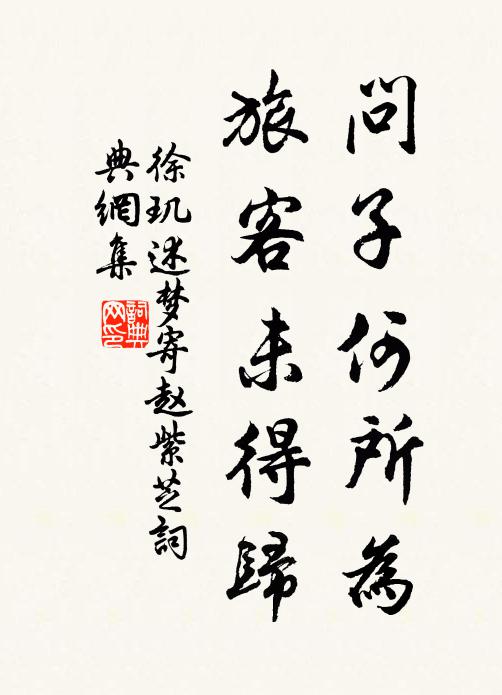 問子何所為
旅客未得歸
徐玑述梦寄赵紫芝詞
典網集
詞典
网印